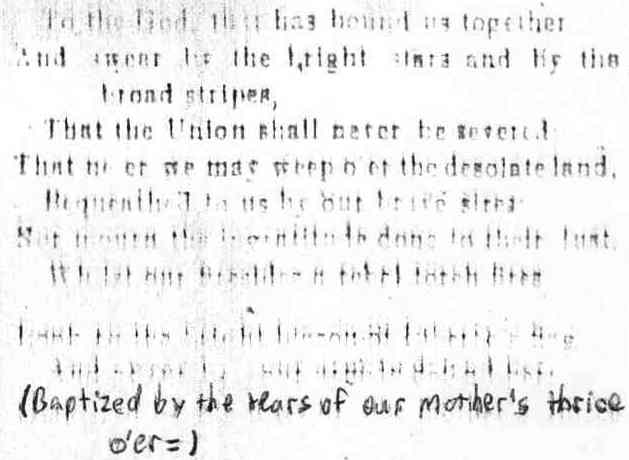 To the God, that has bound us together
And swear by the bright stars and by the
broad stripes,
That the Union shall never be severed
That ne'er we may weep o'er the desolate land,
Bequeathed to us by our brave sires
Nor mourn the ingratitude done to their dust,
Whilst our firesides a rebel torch fires
to the
And swear
(Baptized by the tears of our mother's thrice
o'er=)